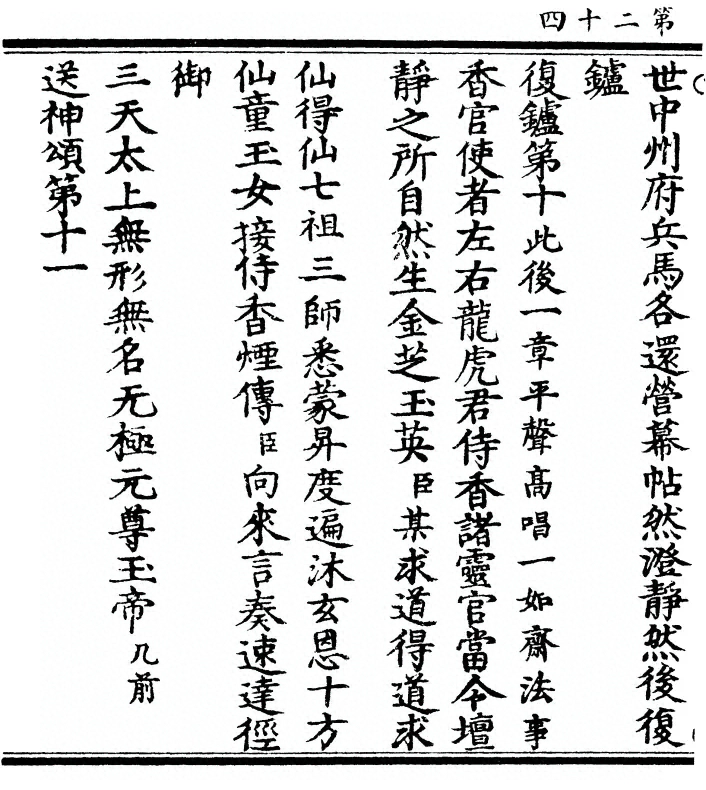 第二十四
世中州府兵馬各還營幕帖然澄靜然後復
鑪
復鑪第十此後一章平聲高唱一如齋法事
香官使者左右龍虎君侍香諸靈官當令壇
靜之所自然生金芝玉英臣某求道得道求
仙得仙七祖三師悉蒙昇度遍沐玄恩十方
仙童玉女接侍香煙傳臣向來言奏速達徑
御
三天太上無形無名无極元尊玉帝几前
送神頌第十一